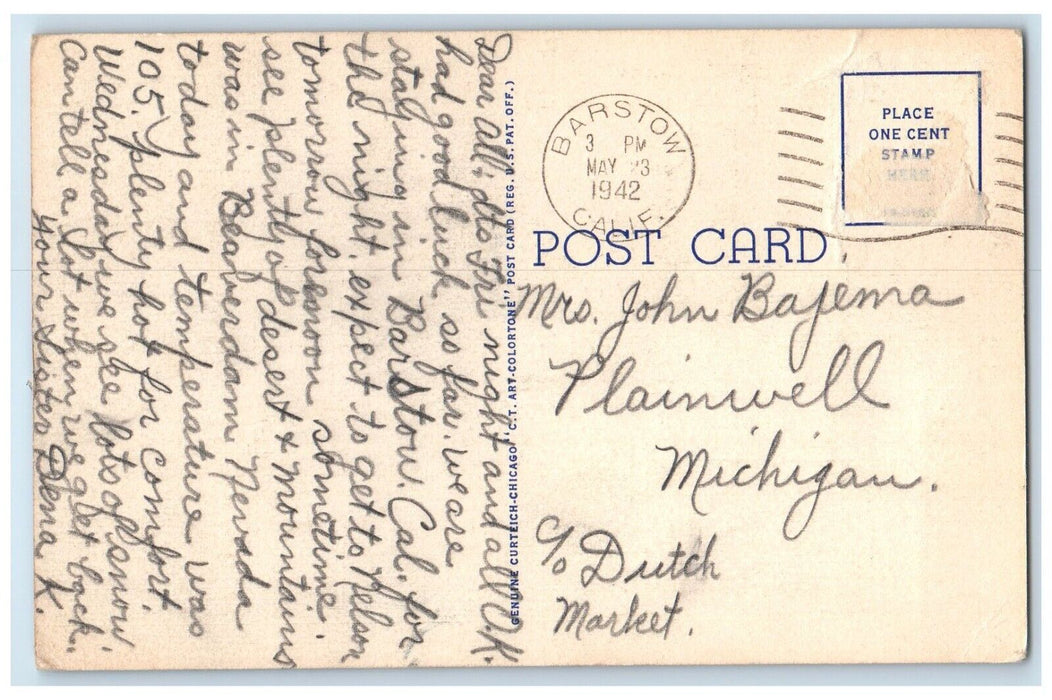 Dear all, its Fri night and all O.K.
had good luck so far. we are
staying in Barstow. Cal. for
the night. expect to get to Nelson
tomorrow forenoon sometime.
see plenty of desert & mountains
was in Beaverdam Nevada
today and temperature was
105. plenty hot for comfort.
Wednesday we see lots of snow.
Can tell a lot when we get back.
Your Sister Diena K.
GENUINE CURTEICH-CHICAGO "C.T. ART-COLORTONE" POST CARD (REG. U.S. PAT. OFF.)
BARSTOW
3 PM
MAY 23
1942
CALIF.
PLACE
ONE CENT
STAMP
HERE
POST CARD
Mrs. John Bajema
Plainwell
Michigan.
c/o Dutch
Market.